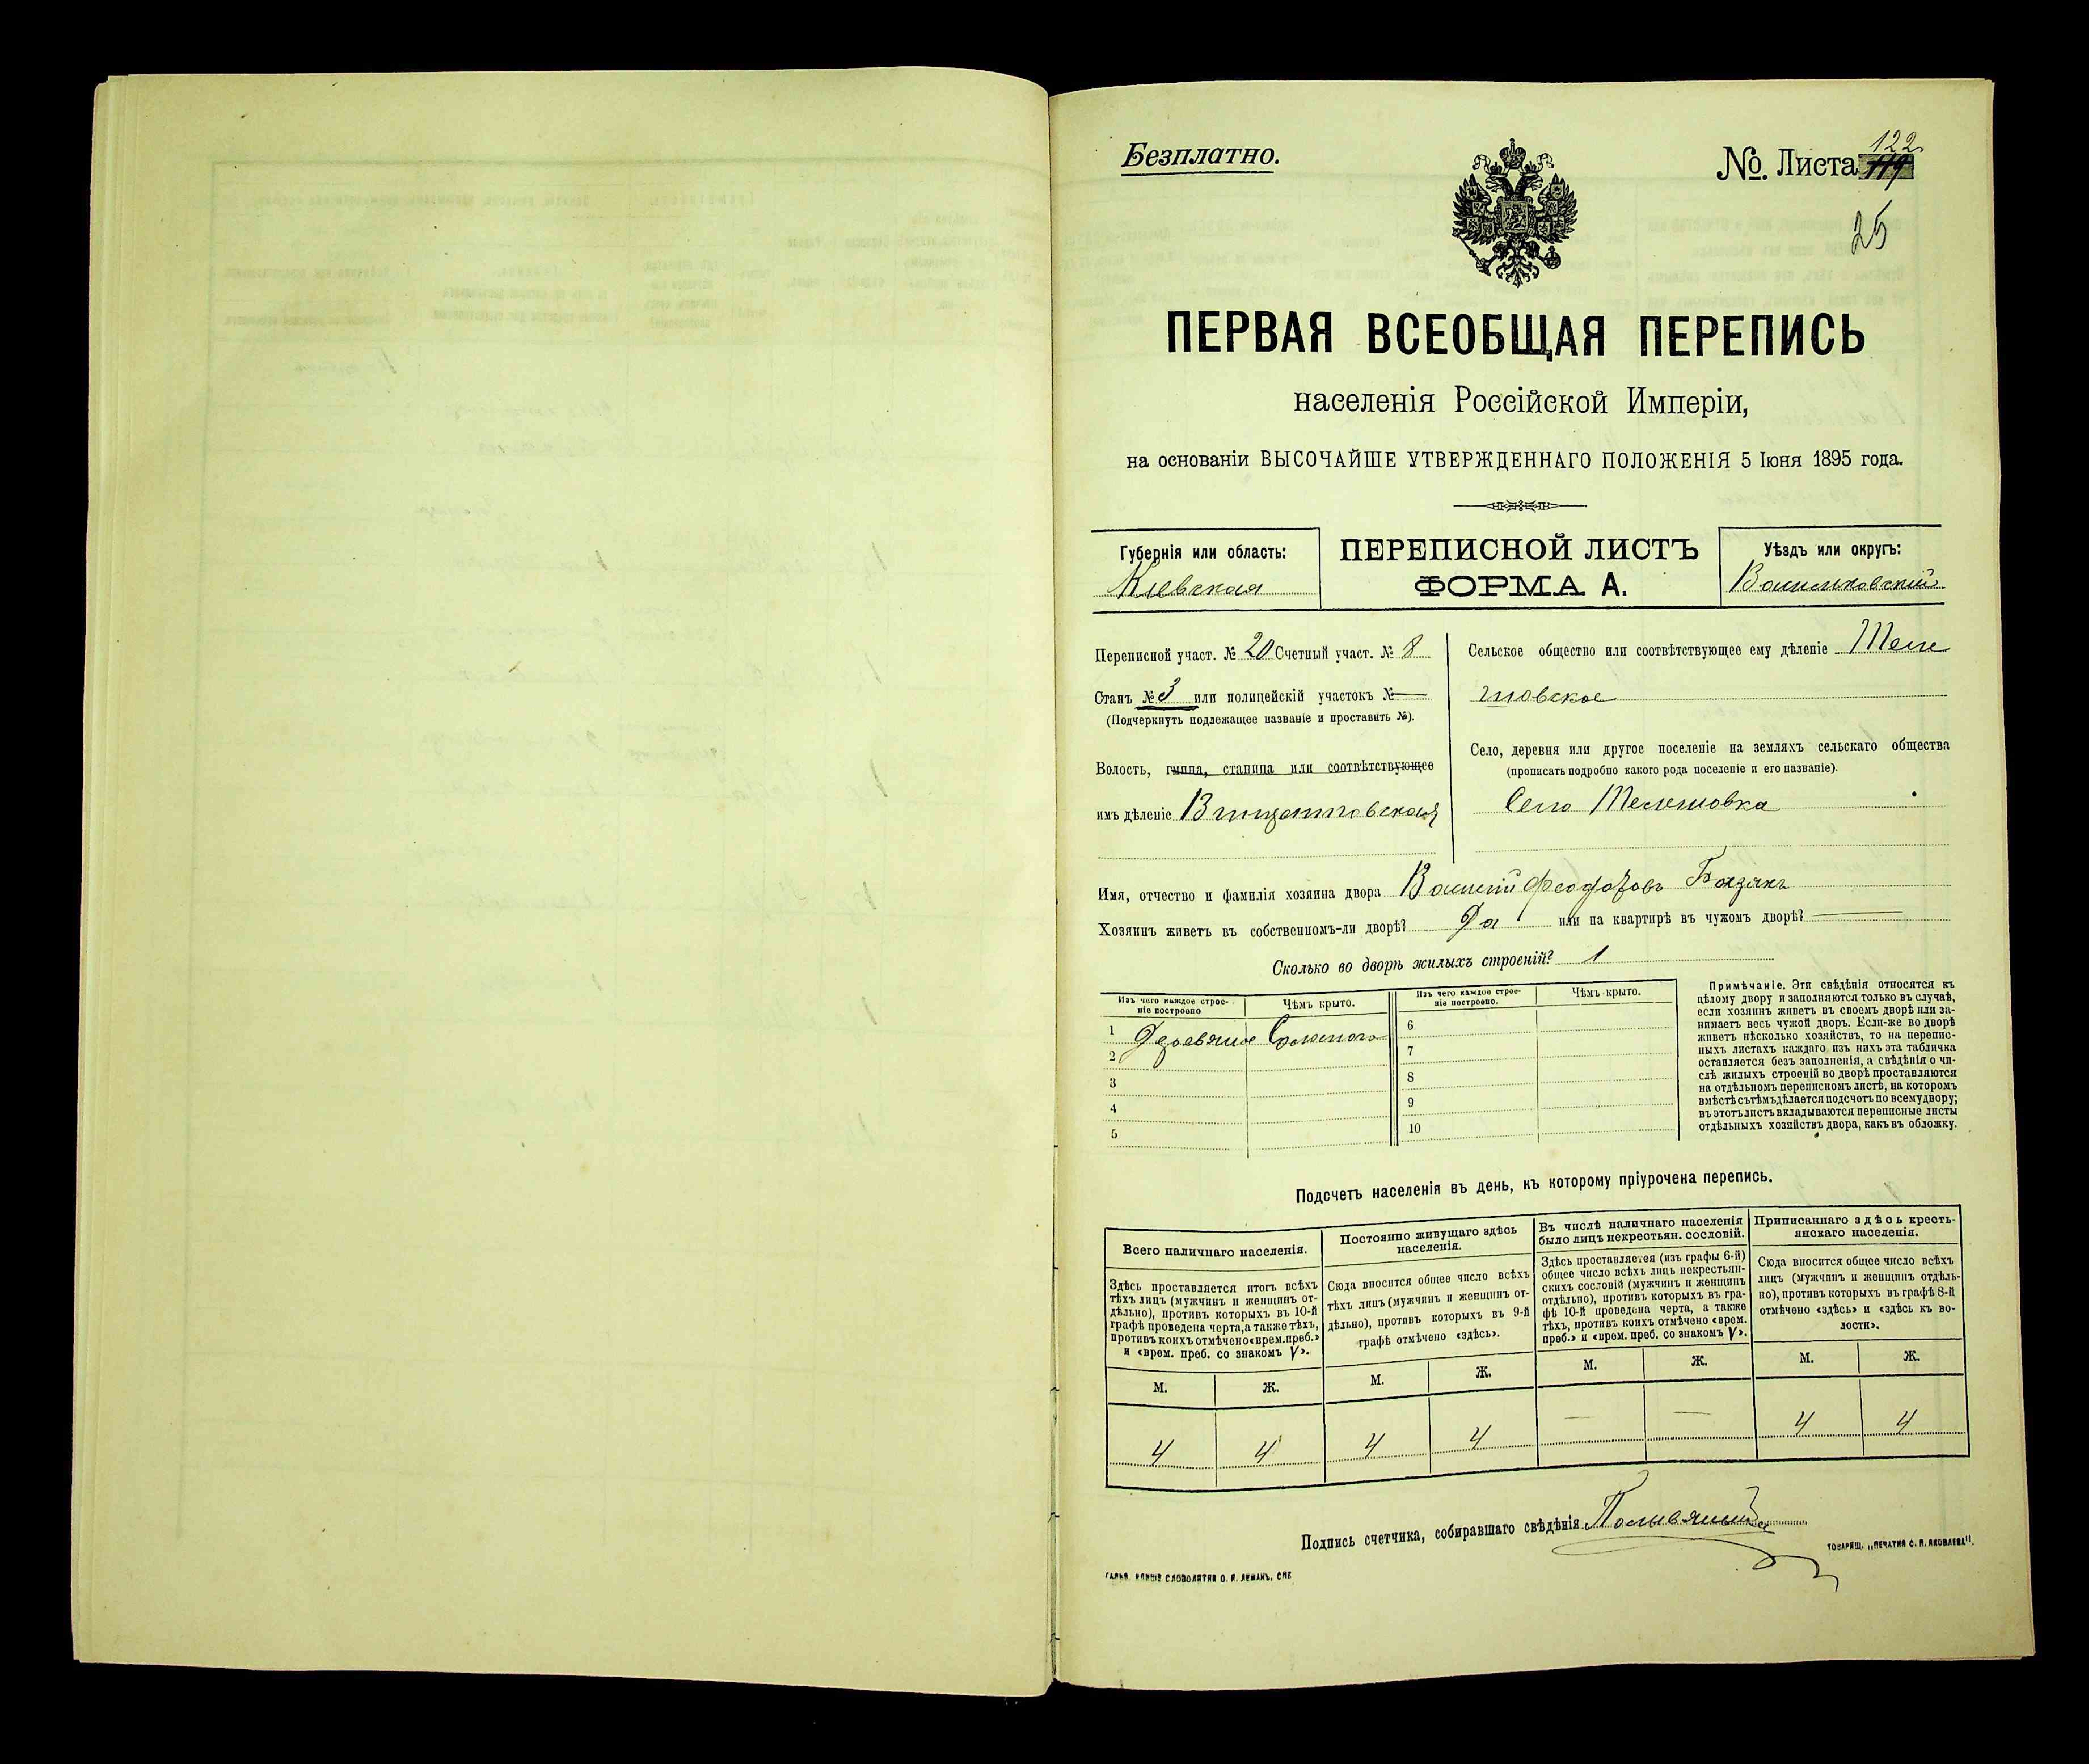 Безплатно.
№. Листа 119 122
25
ПЕРВАЯ ВСЕОБЩАЯ ПЕРЕПИСЬ
населенія Россійской Имперіи,
на основаніи ВЫСОЧАЙШЕ УТВЕРЖДЕННАГО ПОЛОЖЕНІЯ 5 Іюня 1895 года.
Губернія или область:
Кіевская
ПЕРЕПИСНОЙ ЛИСТЪ
ФОРМА А.
Уѣздъ или округъ:
Васильковскій
Переписной участ. № 20 Счетный участ. № 8
Станъ № 3 или полицейскій участокъ № —
(Подчеркнуть подлежащее названіе и проставить №).
Волость, гмина, станица или соотвѣтствующее
имъ дѣленіе Винцентовская
Сельское общество или соотвѣтствующее ему дѣленіе Теле
шовское
Село, деревня или другое поселеніе на земляхъ сельскаго общества
(прописать подробно какого рода поселеніе и его названіе).
Село Телешовка
Имя, отчество и фамилія хозяина двора Василій Феодоровъ
Хозяинъ живетъ въ собственномъ-ли дворѣ? Да или на квартирѣ въ чужомъ дворѣ? —
Сколько во дворѣ жилыхъ строеній? 1
Изъ чего каждое строе-
ніе построено
Чѣмъ крыто.
1 Деревянное Соломою
2
3
4
5
Изъ чего каждое строе-
ніе построено.
Чѣмъ крыто.
6
7
8
9
10
Примѣчаніе. Эти свѣдѣнія относятся къ
цѣлому двору и заполняются только въ случаѣ,
если хозяинъ живетъ въ своемъ дворѣ или за-
нимаетъ весь чужой дворъ. Если-же во дворѣ
живетъ нѣсколько хозяйствъ, то на перепис-
ныхъ листахъ каждаго изъ нихъ эта табличка
оставляется безъ заполненія, а свѣдѣнія о чи-
слѣ жилыхъ строеній во дворѣ проставляются
на отдѣльномъ переписномъ листѣ, на которомъ
вмѣстѣ съ тѣмъ дѣлается подсчетъ по всему двору;
въ этотъ листъ вкладываются переписные листы
отдѣльныхъ хозяйствъ двора, какъ въ обложку.
Подсчетъ населенія въ день, къ которому пріурочена перепись.
Всего наличнаго населенія.
Здѣсь проставляется итогъ всѣхъ
тѣхъ лицъ (мужчинъ и женщинъ от-
дѣльно), противъ которыхъ въ 10-й
графѣ проведена черта, а также тѣхъ,
противъ коихъ отмѣчено «врем. преб.»
и «врем. преб. со знакомъ V».
М. Ж.
4 4
Постоянно живущаго здѣсь
населенія.
Сюда вносится общее число всѣхъ
тѣхъ лицъ (мужчинъ и женщинъ от-
дѣльно), противъ которыхъ въ 9-й
графѣ отмѣчено «здѣсь».
М. Ж.
4 4
Въ числѣ наличнаго населенія
было лицъ некрестьян. сословій.
Здѣсь проставляется (изъ графы 6-й)
общее число всѣхъ лицъ некрестьян-
скихъ сословій (мужчинъ и женщинъ
отдѣльно), противъ которыхъ въ гра-
фѣ 10-й проведена черта, а также
тѣхъ, противъ коихъ отмѣчено «врем.
преб.» и «врем. преб. со знакомъ V».
М. Ж.
— —
Приписаннаго здѣсь кресть-
янскаго населенія.
Сюда вносится общее число всѣхъ
лицъ (мужчинъ и женщинъ отдѣль-
но), противъ которыхъ въ графѣ 8-й
отмѣчено «здѣсь» и «здѣсь къ во-
лости».
М. Ж.
4 4
Подпись счетчика, собиравшаго свѣдѣнія
ТОВАРИЩ. „ПЕЧАТНЯ С. П. ЯКОВЛЕВА".
СЛОВОЛИТНИ О. И. ЛЕМАНЪ. СПБ